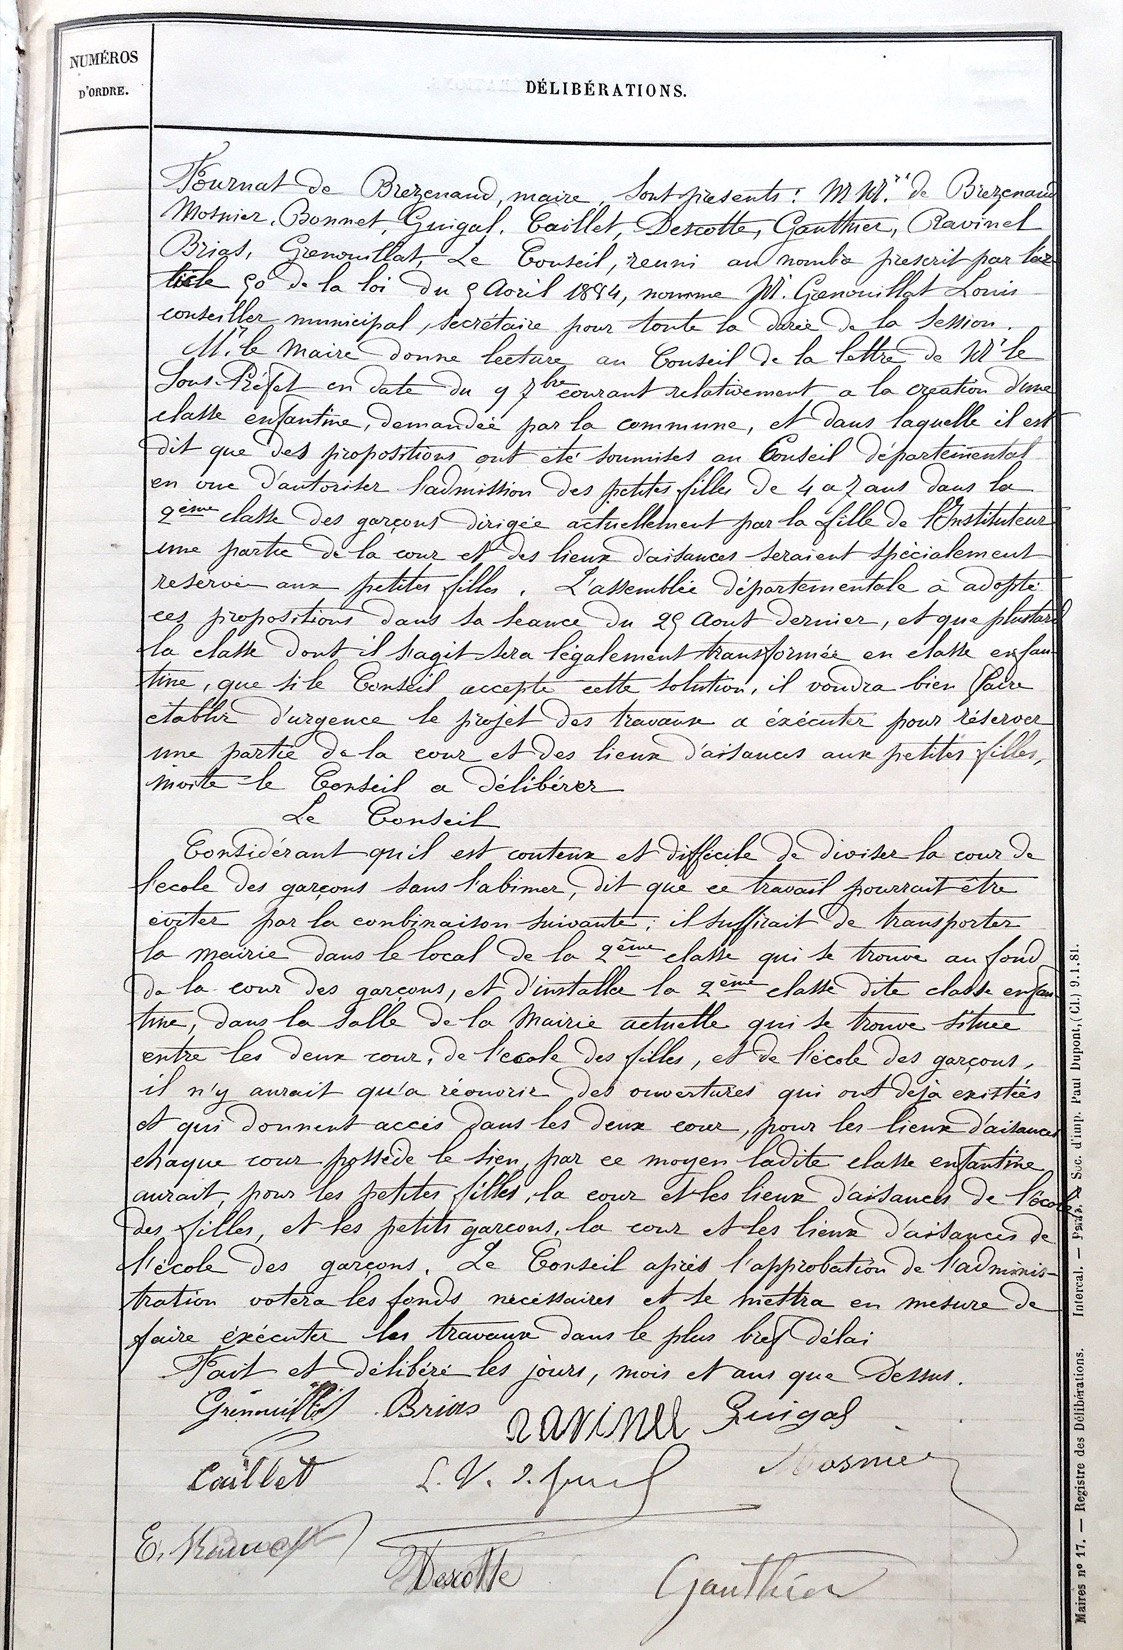 NUMÉROS
D'ORDRE.
DÉLIBÉRATIONS.
Tournat de Brezenaud, maire, Sont présents : MM.rs de Brezenaud
Mosnier, Bonnet, Guigal, Caillet, Descotte, Gauthier, Ravinel
Brias, Grenouillat, Le Conseil, reuni au nombre prescrit par l'ar
ticle 50 de la loi du 5 Avril 1884, nomme M. Grenouillat Louis
conseiller municipal, secrétaire pour toute la durée de la Session.
M.r le Maire donne lecture au Conseil de la lettre de Mr le
Sous-Préfet en date du 9 7bre courant relativement a la création d'une
classe enfantine, demandée par la commune, et dans laquelle il est
dit que des propositions ont été soumises au Conseil départemental
en vue d'autoriser l'admission des petites filles de 4 a 7 ans dans la
2ème classe des garçons dirigée actuellement par la fille de l'Instituteur
une partie de la cour et des lieux d'aisances seraient spécialement
reservé aux petites filles. L'assemblée départementale à adopté
ces propositions dans sa seance du 25 Aout dernier, et que plustard
la classe dont il s'agit sera légalement transformée en classe enfan-
tine, que si le Conseil accepte cette solution, il voudra bien faire
établir d'urgence le projet des travaux a éxécuter pour réserver
une partie de la cour et des lieux d'aisances aux petites filles,
invite le Conseil a délibérer
Le Conseil
Considérant qu'il est couteux et difficile de diviser la cour de
l'ecole des garçons sans l'abimer, dit que ce travail pourrait être
éviter par la conbinaison suivante : il suffirait de transporter
la mairie dans le local de la 2ème classe qui se trouve au fond
de la cour des garçons, et d'installer la 2ème classe dite classe enfan
tine, dans la salle de la Mairie actuelle qui se trouve située
entre les deux cour, de l'école des filles, et de l'école des garçons,
il n'y aurait qu'a réouvrir des ouvertures qui ont déjà existées
et qui donnent accès dans les deux cour, pour les lieux d'aisances
chaque cour possède le sien, par ce moyen ladite classe enfantine
aurait, pour les petites filles, la cour et les lieux d'aisances de l'école
des filles, et les petits garçons, la cour et les lieux d'aisances de
l'école des garçons. Le Conseil après l'approbation de l'adminis-
tration votera les fonds necéssaires et se mettra en mesure de
faire éxécuter les travaux dans le plus bref délai
Fait et délibéré les jours, mois et ans que Dessus.
Grenouillat Brias ravinel Guigal
Caillet Mosnier
Descotte Gauthier
Maires nº 17. — Registre des Délibérations. Intercal. — Paris. Soc. d'imp. Paul Dupont, (Cl.) 9.1.81.